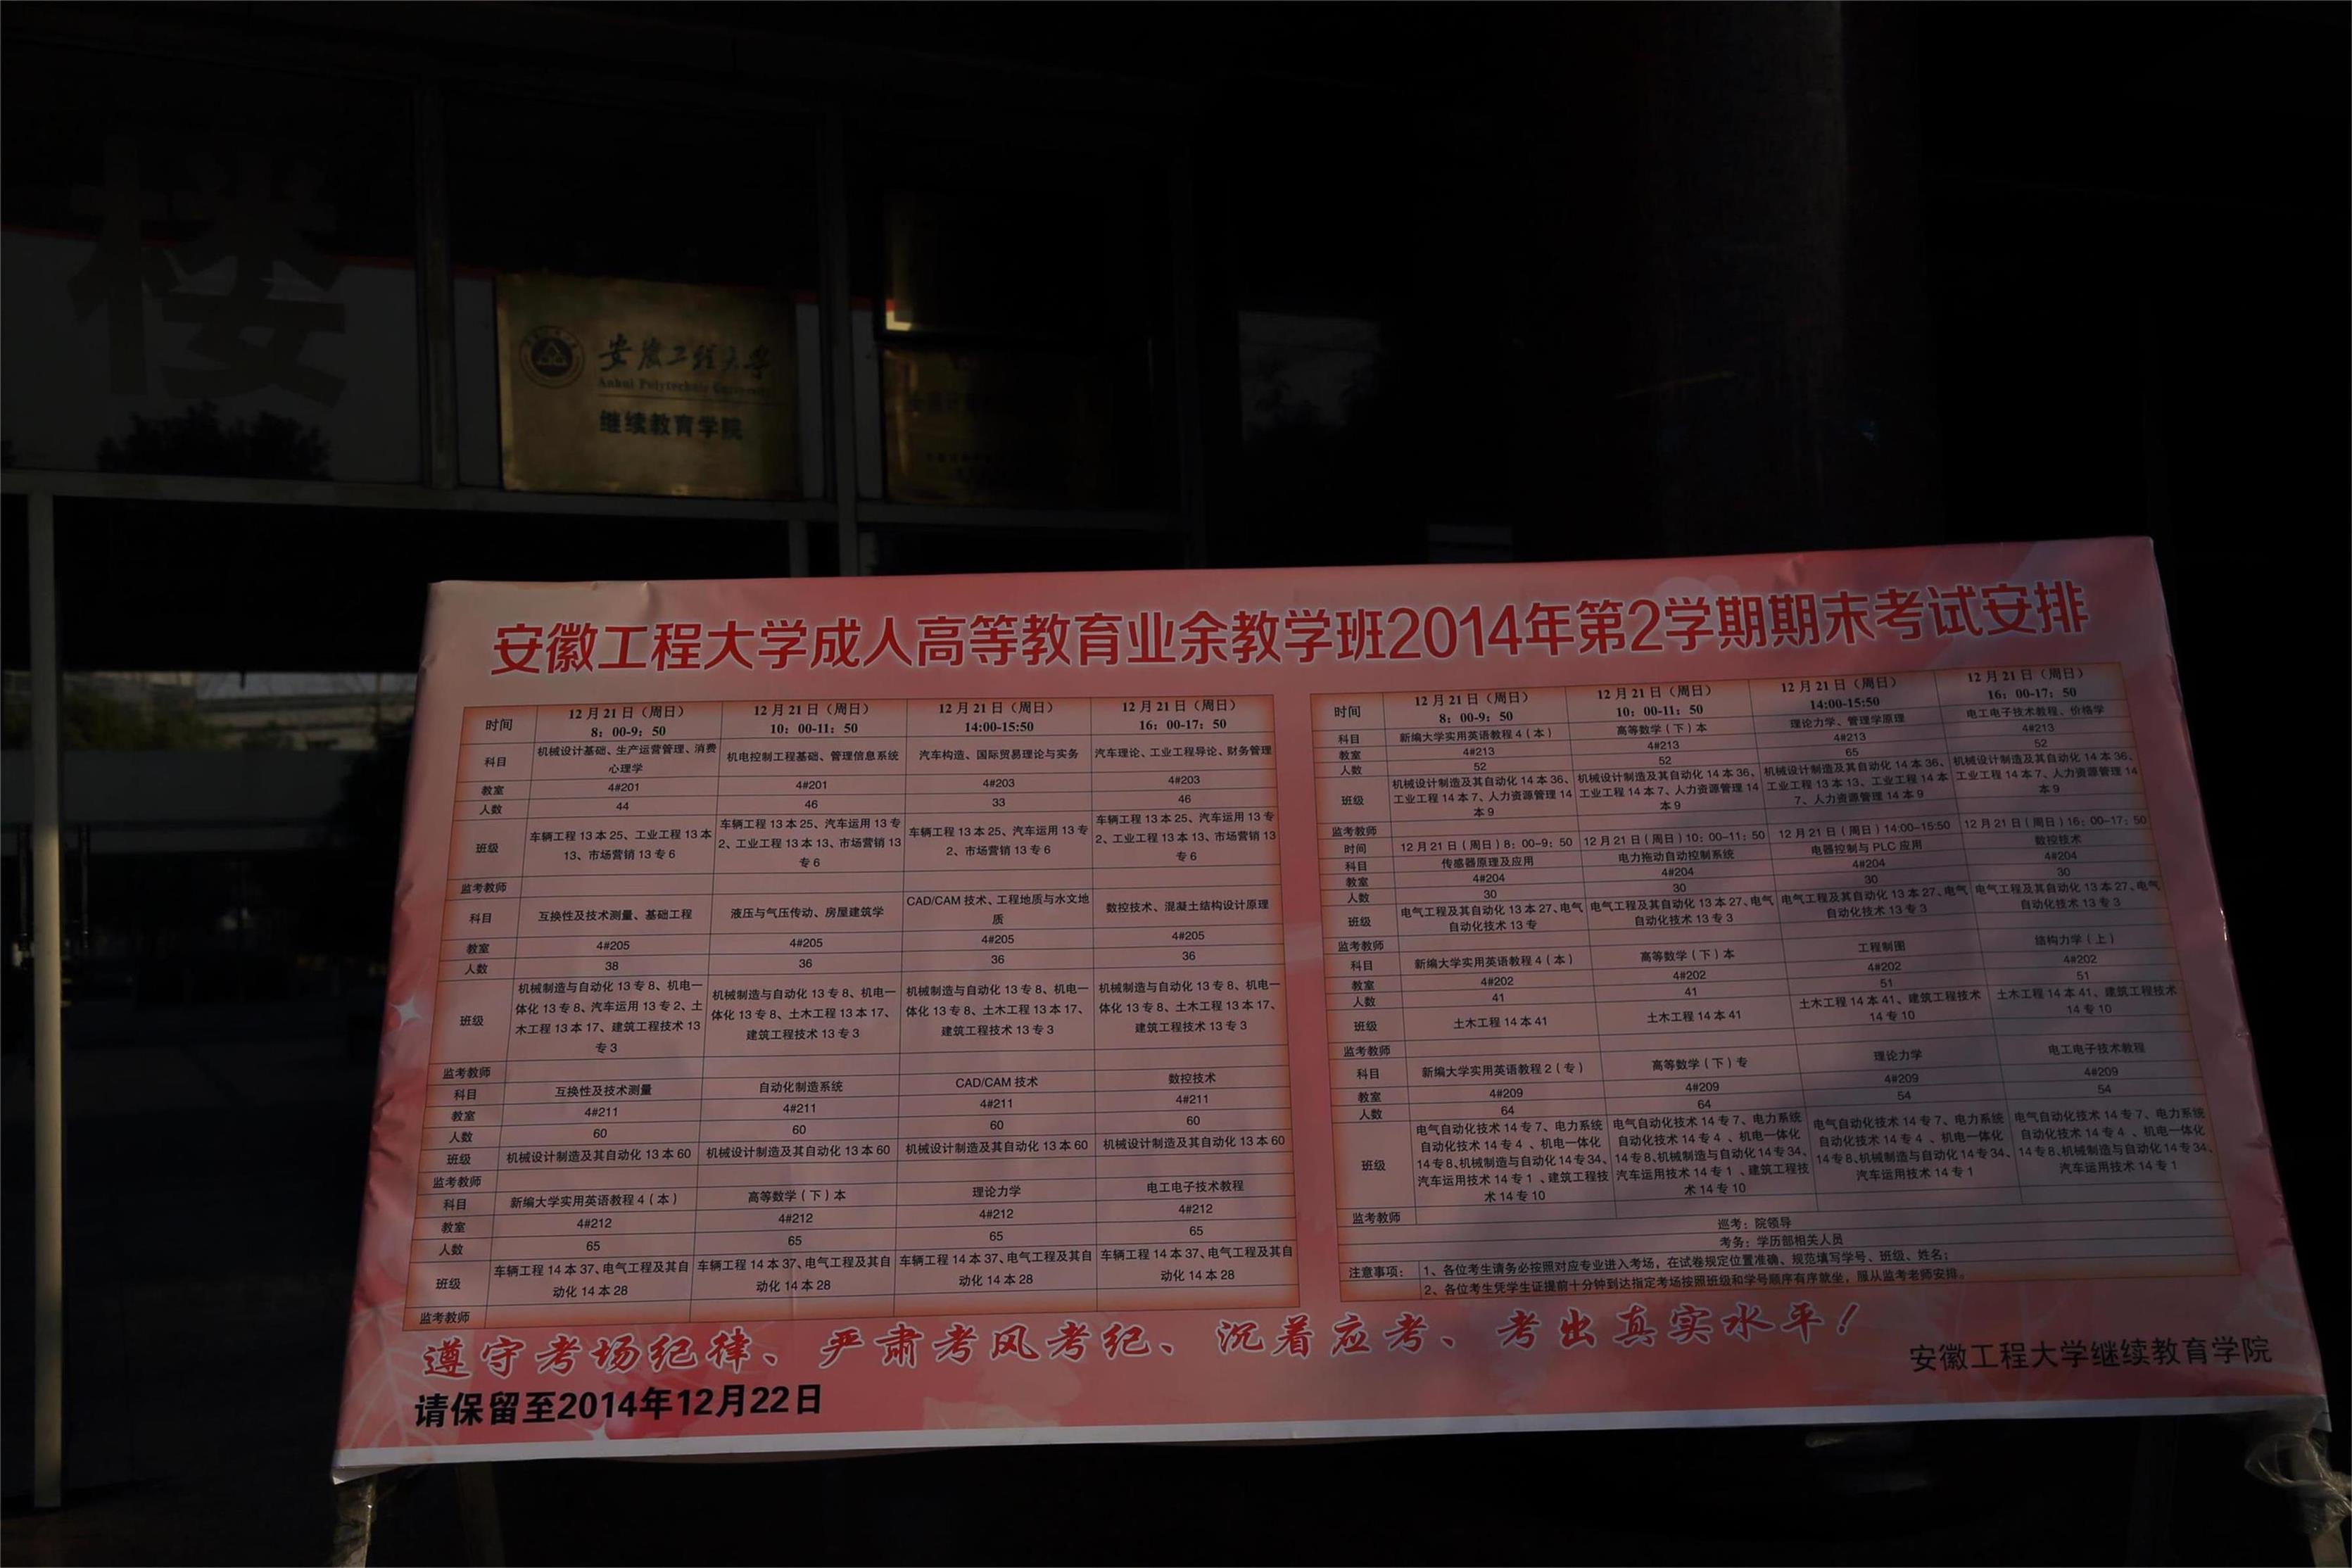 楼
安徽工程大学
Anhui Polytechnic University
继续教育学院
安徽工程大学成人高等教育业余教学班2014年第2学期期末考试安排
时间 12月21日（周日） 12月21日（周日） 12月21日（周日） 12月21日（周日）
8：00-9：50 10：00-11：50 14:00-15:50 16：00-17：50
科目 机械设计基础、生产运营管理、消费心理学 机电控制工程基础、管理信息系统 汽车构造、国际贸易理论与实务 汽车理论、工业工程导论、财务管理
教室 4#201 4#201 4#203 4#203
人数 44 46 33 46
班级 车辆工程13本25、工业工程13本13、市场营销13专6 车辆工程13本25、汽车运用13专2、工业工程13本13、市场营销13专6 车辆工程13本25、汽车运用13专2、市场营销13专6 车辆工程13本25、汽车运用13专2、工业工程13本13、市场营销13专6
监考教师
科目 互换性及技术测量、基础工程 液压与气压传动、房屋建筑学 CAD/CAM技术、工程地质与水文地质 数控技术、混凝土结构设计原理
教室 4#205 4#205 4#205 4#205
人数 38 36 36 36
班级 机械制造与自动化13专8、机电一体化13专8、汽车运用13专2、土木工程13本17、建筑工程技术13专3 机械制造与自动化13专8、机电一体化13专8、土木工程13本17、建筑工程技术13专3 机械制造与自动化13专8、机电一体化13专8、土木工程13本17、建筑工程技术13专3 机械制造与自动化13专8、机电一体化13专8、土木工程13本17、建筑工程技术13专3
监考教师
科目 互换性及技术测量 自动化制造系统 CAD/CAM技术 数控技术
教室 4#211 4#211 4#211 4#211
人数 60 60 60 60
班级 机械设计制造及其自动化13本60 机械设计制造及其自动化13本60 机械设计制造及其自动化13本60 机械设计制造及其自动化13本60
监考教师
科目 新编大学实用英语教程4（本） 高等数学（下）本 理论力学 电工电子技术教程
教室 4#212 4#212 4#212 4#212
人数 65 65 65 65
班级 车辆工程14本37、电气工程及其自动化14本28 车辆工程14本37、电气工程及其自动化14本28 车辆工程14本37、电气工程及其自动化14本28 车辆工程14本37、电气工程及其自动化14本28
监考教师
时间 12月21日（周日） 12月21日（周日） 12月21日（周日） 12月21日（周日）
8：00-9：50 10：00-11：50 14:00-15:50 16：00-17：50
科目 新编大学实用英语教程4（本） 高等数学（下）本 理论力学、管理学原理 电工电子技术教程、价格学
教室 4#213 4#213 4#213 4#213
人数 52 52 65 52
班级 机械设计制造及其自动化14本36、工业工程14本7、人力资源管理14本9 机械设计制造及其自动化14本36、工业工程14本7、人力资源管理14本9 机械设计制造及其自动化14本36、工业工程13本13、工业工程14本7、人力资源管理14本9 机械设计制造及其自动化14本36、工业工程14本7、人力资源管理14本9
监考教师
时间 12月21日（周日）8：00-9：50 12月21日（周日）10：00-11：50 12月21日（周日）14:00-15:50 12月21日（周日）16：00-17：50
科目 传感器原理及应用 电力拖动自动控制系统 电器控制与PLC应用 数控技术
教室 4#204 4#204 4#204 4#204
人数 30 30 30 30
班级 电气工程及其自动化13本27、电气自动化技术13专 电气工程及其自动化13本27、电气自动化技术13专3 电气工程及其自动化13本27、电气自动化技术13专3 电气工程及其自动化13本27、电气自动化技术13专3
监考教师
科目 新编大学实用英语教程4（本） 高等数学（下）本 工程制图 结构力学（上）
教室 4#202 4#202 4#202 4#202
人数 41 41 51 51
班级 土木工程14本41 土木工程14本41 土木工程14本41、建筑工程技术14专10 土木工程14本41、建筑工程技术14专10
监考教师
科目 新编大学实用英语教程2（专） 高等数学（下）专 理论力学 电工电子技术教程
教室 4#209 4#209 4#209 4#209
人数 64 64 54 54
班级 电气自动化技术14专7、电力系统自动化技术14专4、机电一体化14专8、机械制造与自动化14专34、汽车运用技术14专1、建筑工程技术14专10 电气自动化技术14专7、电力系统自动化技术14专4、机电一体化14专8、机械制造与自动化14专34、汽车运用技术14专1、建筑工程技术14专10 电气自动化技术14专7、电力系统自动化技术14专4、机电一体化14专8、机械制造与自动化14专34、汽车运用技术14专1 电气自动化技术14专7、电力系统自动化技术14专4、机电一体化14专8、机械制造与自动化14专34、汽车运用技术14专1
监考教师
巡考：院领导
考务：学历部相关人员
注意事项： 1、各位考生请务必按照对应专业进入考场，在试卷规定位置准确、规范填写学号、班级、姓名；
2、各位考生凭学生证提前十分钟到达指定考场按照班级和学号顺序有序就坐，服从监考老师安排。
遵守考场纪律、严肃考风考纪、沉着应考、考出真实水平！
安徽工程大学继续教育学院
请保留至2014年12月22日